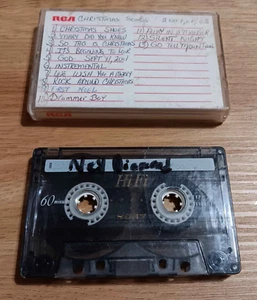 RCA CHRISTMAS SONGS
1) CHRISTMAS SHOES
2) MARY DID YOU KNOW
3) SO THIS IS CHRISTMAS
4) ITS BEGINNING TO LOOK
5) GOD SEPT 11, 2001
6) INSTRUMENTAL
7) WE WISH YOU A MERRY
8) ROCK AROUND CHRISTMAS
9) FIRST NOEL
10) DRUMMER BOY
11) AWAY IN A MANGER
12) SILENT NIGHT
13) GO TELL MOUNTAIN
Neil Diamond
HiFi
60